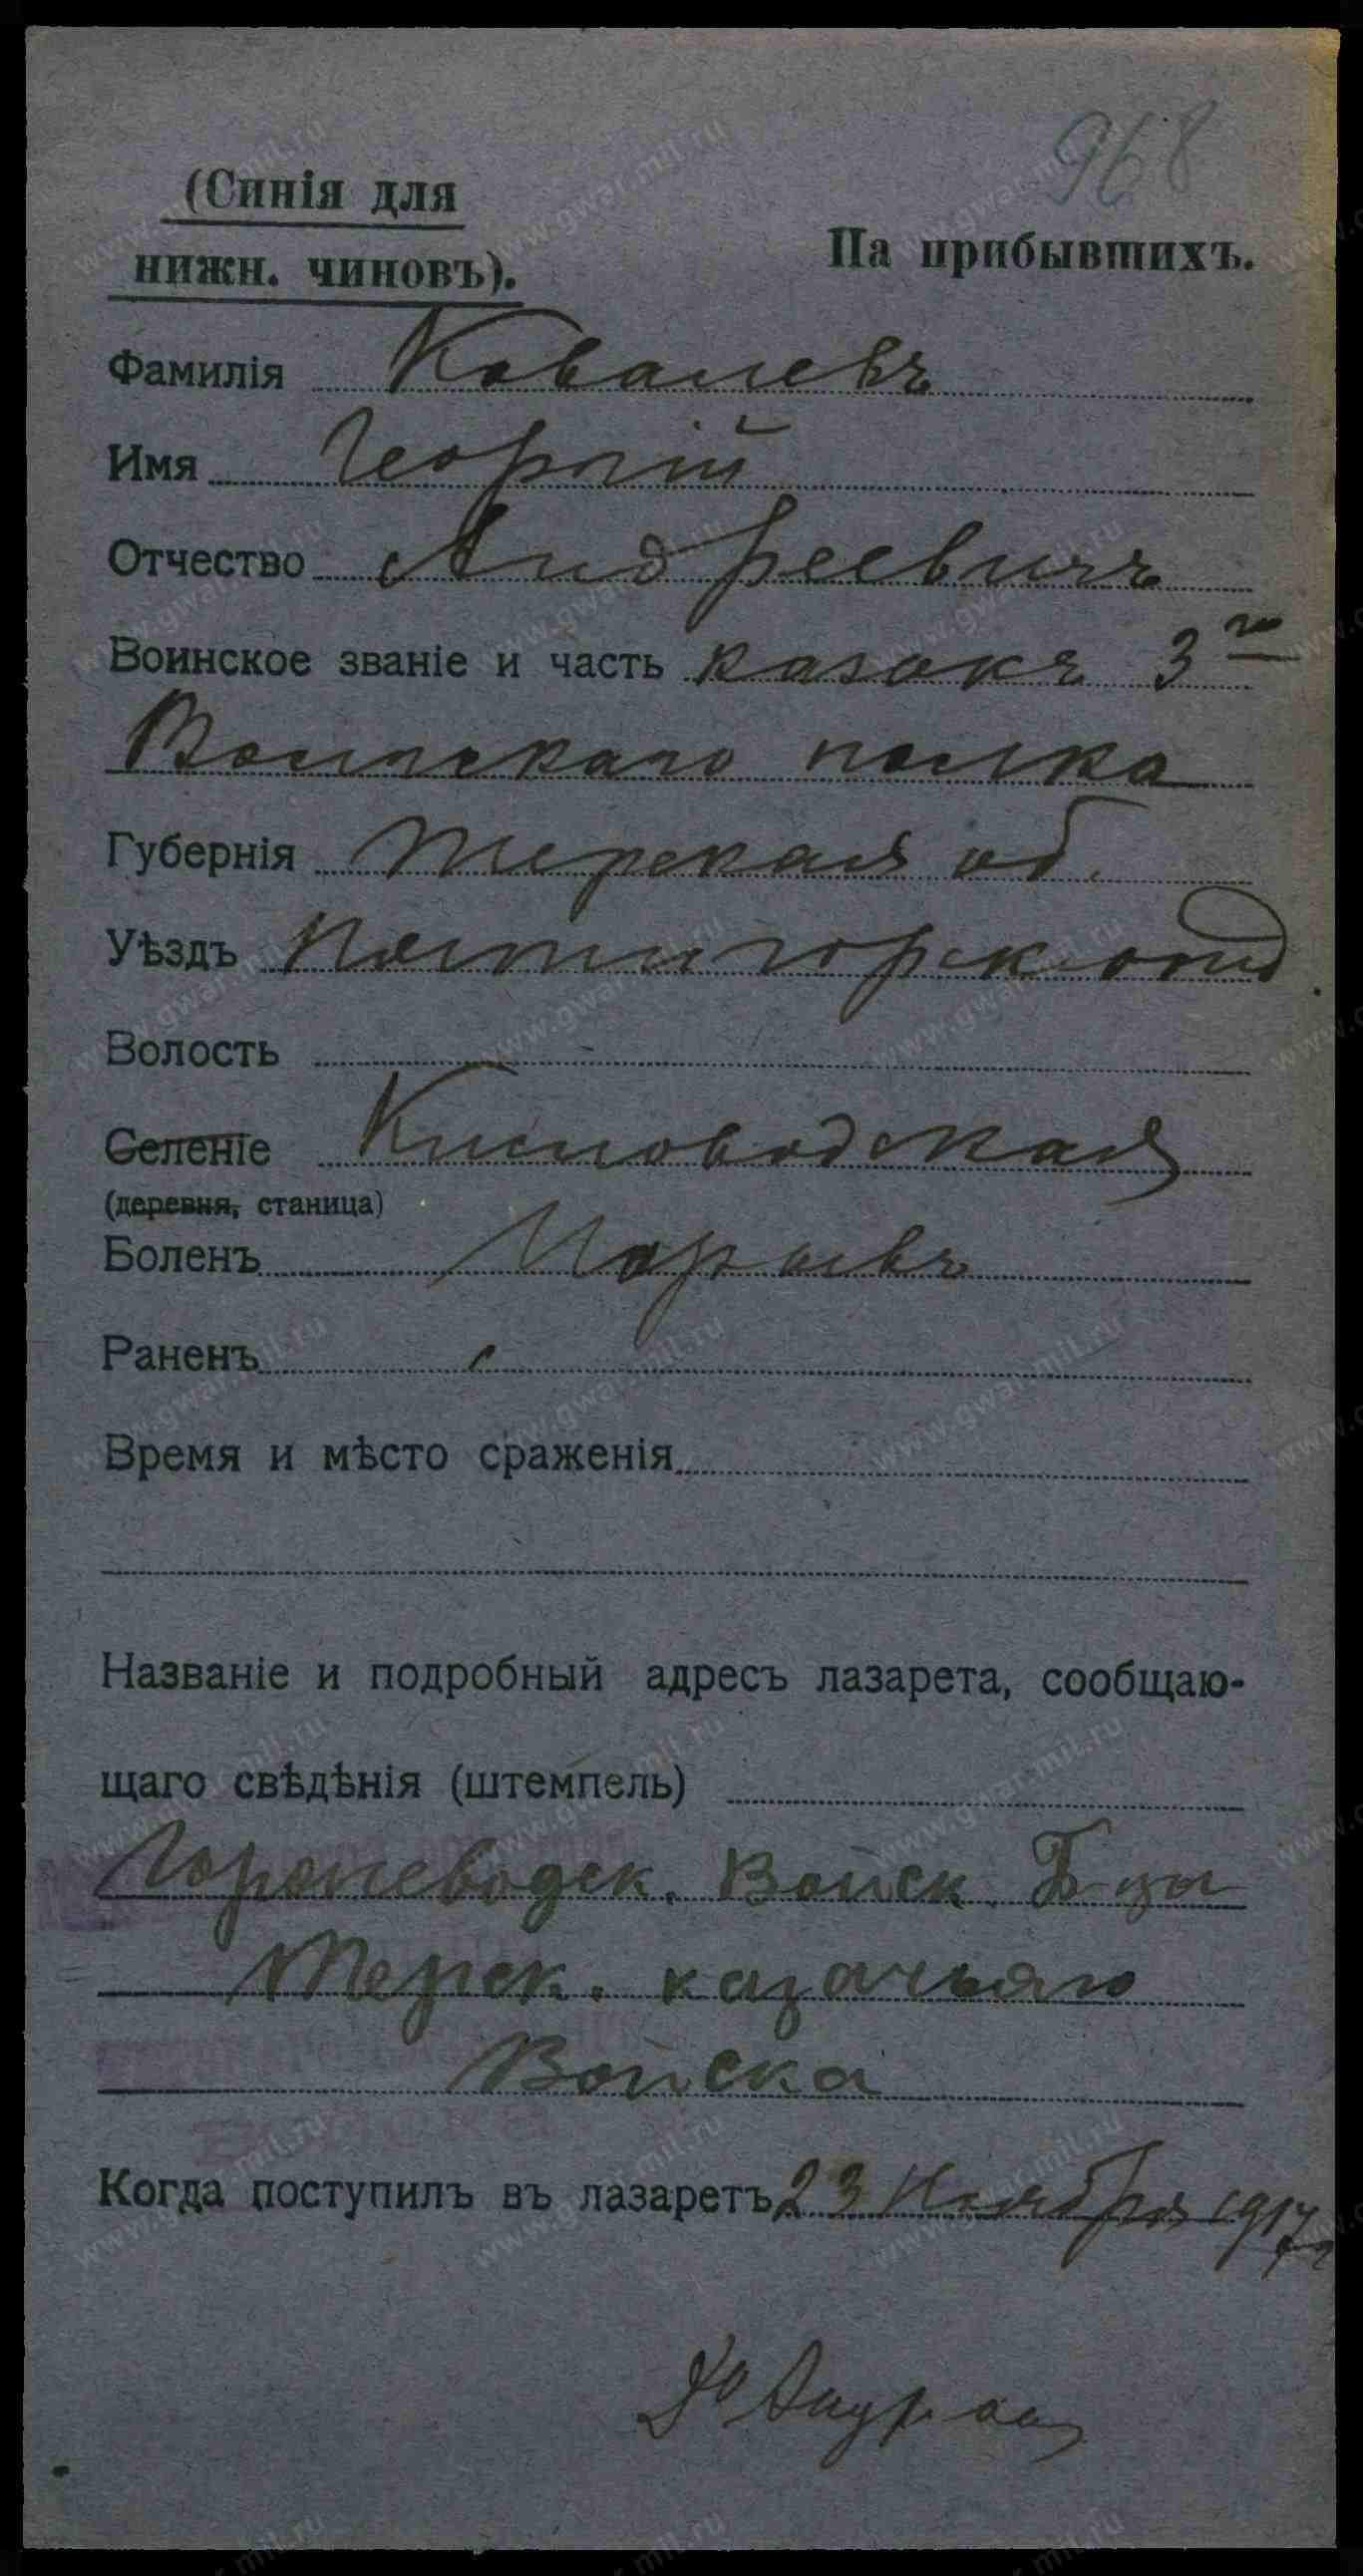 968
(Синія для
нижн. чиновъ).
На прибывшихъ.
Фамилія Ковалевъ
Имя Георгій
Отчество Андреевичъ
Воинское званіе и часть казакъ 3го
полка
Губернія Терская об.
Уѣздъ Пятигорск отд.
Волость
Селеніе Кисловодская
(деревня, станица)
Боленъ
Раненъ
Время и мѣсто сраженія
Названіе и подробный адресъ лазарета, сообщаю-
щаго свѣдѣнія (штемпель)
Горячеводск. Войск. Б-цы
Терск. казачьяго
Войска
Когда поступилъ въ лазаретъ 23 Ноября 1917 г
www.gwar.mil.ru